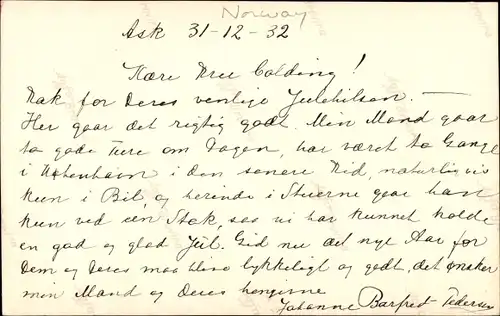 Norway
Ask 31-12-32
Kære Fru Colding!
Tak for Deres venlige Julehilsen. —
Her gaar det rigtig godt. Min Mand gaar
to gode Ture om Dagen, har været to Gange
i København i den senere Tid, naturligvis
kun i Bil, og herinde i Stuerne gaar han
kun ved een Stok, saa vi har kunnet holde
en god og glad Jul. Gid nu det nye Aar for
Dem og Deres maa blive lykkeligt og godt, det ønsker
min Mand og Deres hengivne
Johanne Barfred-Pedersen